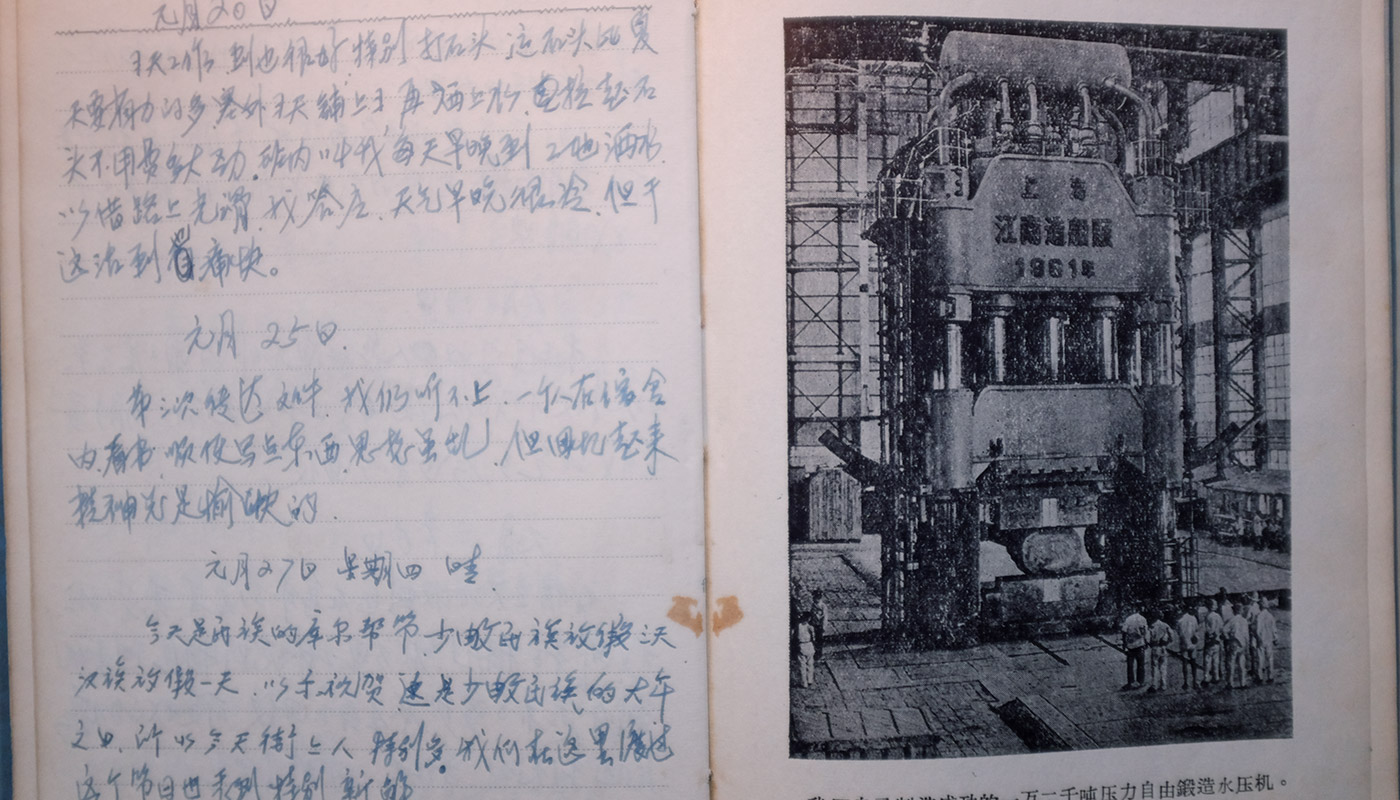 元月20日
天工作到也很好,特别打石头,这石头比夏
天要省力的多,塞外天铺上土再洒上水,拉起石
头不用多大劲,班内叫我每天早晚到工地洒水
以借路上光滑,我答应,天气早晚很冷,但干
这活到痛快。
元月25日.
第二次传达文件,我们听不上.一个人在宿舍
内看书,顺便写点东西,思想虽乱,但回忆起来
精神还是愉快的.
元月27日 星期四 晴
今天是民族的库尔邦节,少数民族放假三天
汉族放假一天,以于祝贺,这是少数民族的大年
之日,所以今天街上人特别多,我们在这里渡过
这个节日也感到特别新鲜
上海
江南造船厰
1961年
制造成功的一万二千吨压力自由鍛造水压机。